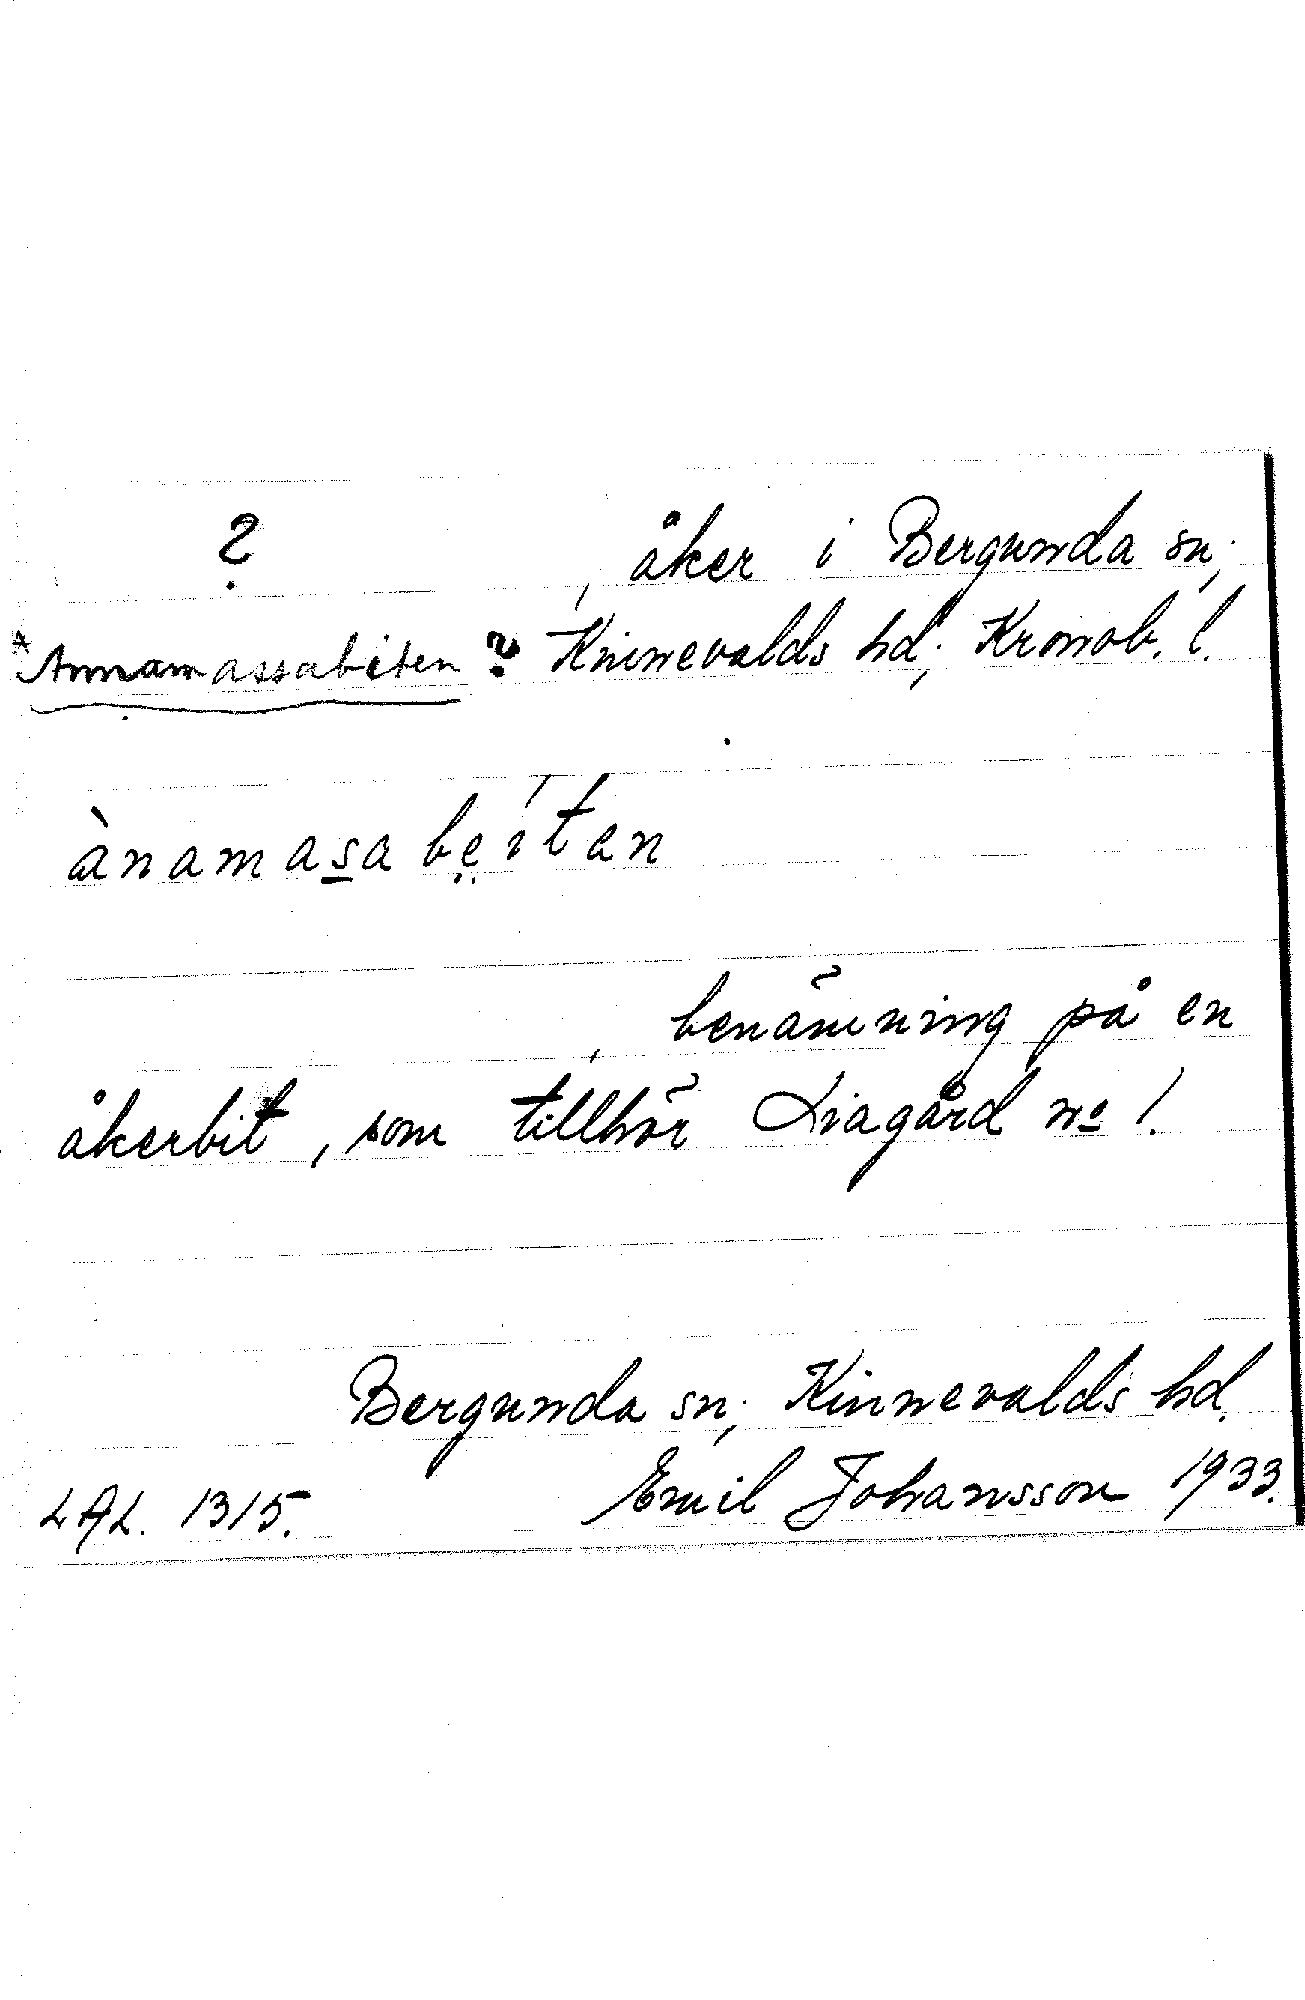 ? , åker i Bergunda sn,
*Annamassabiten ? Kinnevalds hd, Kronob. l.
ànamasabẹitan
, benämning på en
åkerbit, som tillhör Liagård nº 1.
Bergunda sn, Kinnevalds hd.
LAL. 1315. Emil Johansson 1933.